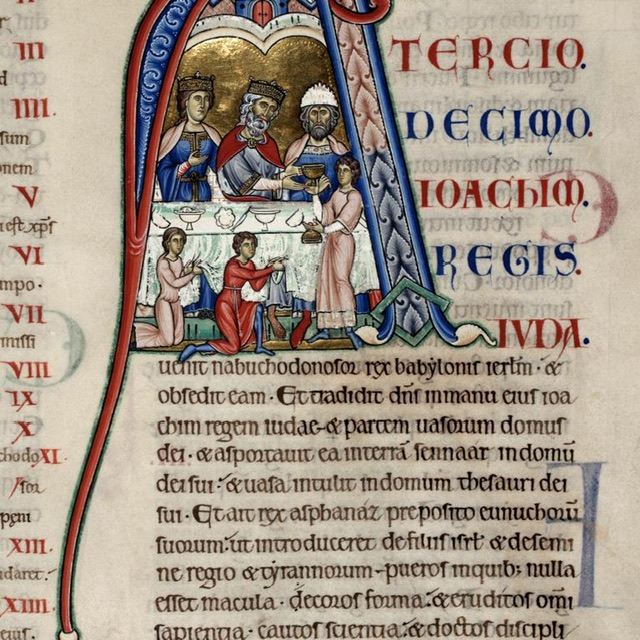 II
III
IIII.
sum
onem
V
VI
mpo.
VII
missi
VIII
IX
X
chodo XI.
XIII.
XIIII.
A
TERCIO.
DECIMO.
IOACHIM.
REGIS.
IUDA.
uenit nabuchodonosor rex babylonis ierl̄m · &
obsedit eam · Et tradidit dn̄s in manu eius ioa
chim regem iudae · & partem uasorum domus
dei · & asportauit ea in terrā sennaar in domū
dei sui · & uasa intulit in domum thesauri dei
sui · Et ait rex asphanaz preposito eunuchorū
suorum ut introduceret de filiis isrł & de semi
ne regio & tyrannorum · pueros in quib; nulla
esset macula · decoros forma · & eruditos om̄i
sapientia · cautos scientia · & doctos discipli